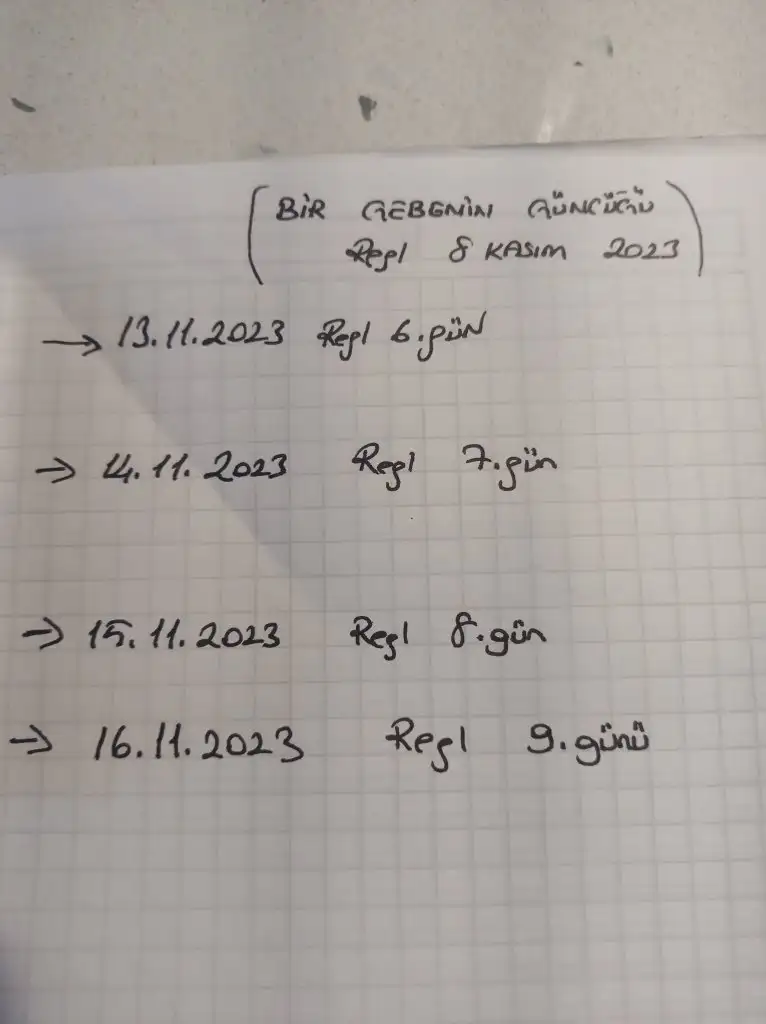 (BİR GEBENİN GÜNCÜĞÜ
Regl 8 KASIM 2023)
→ 13.11.2023 Regl 6.gün
→ 14.11.2023 Regl 7.gün
→ 15.11.2023 Regl 8.gün
→ 16.11.2023 Regl 9.günü